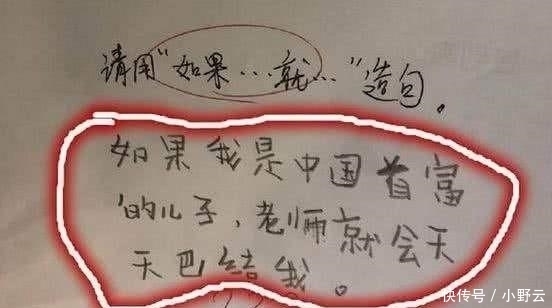 请用“如果…就…”造句。
如果我是中国首富
的儿子,老师就会天
天巴结我。
快传号/小野云